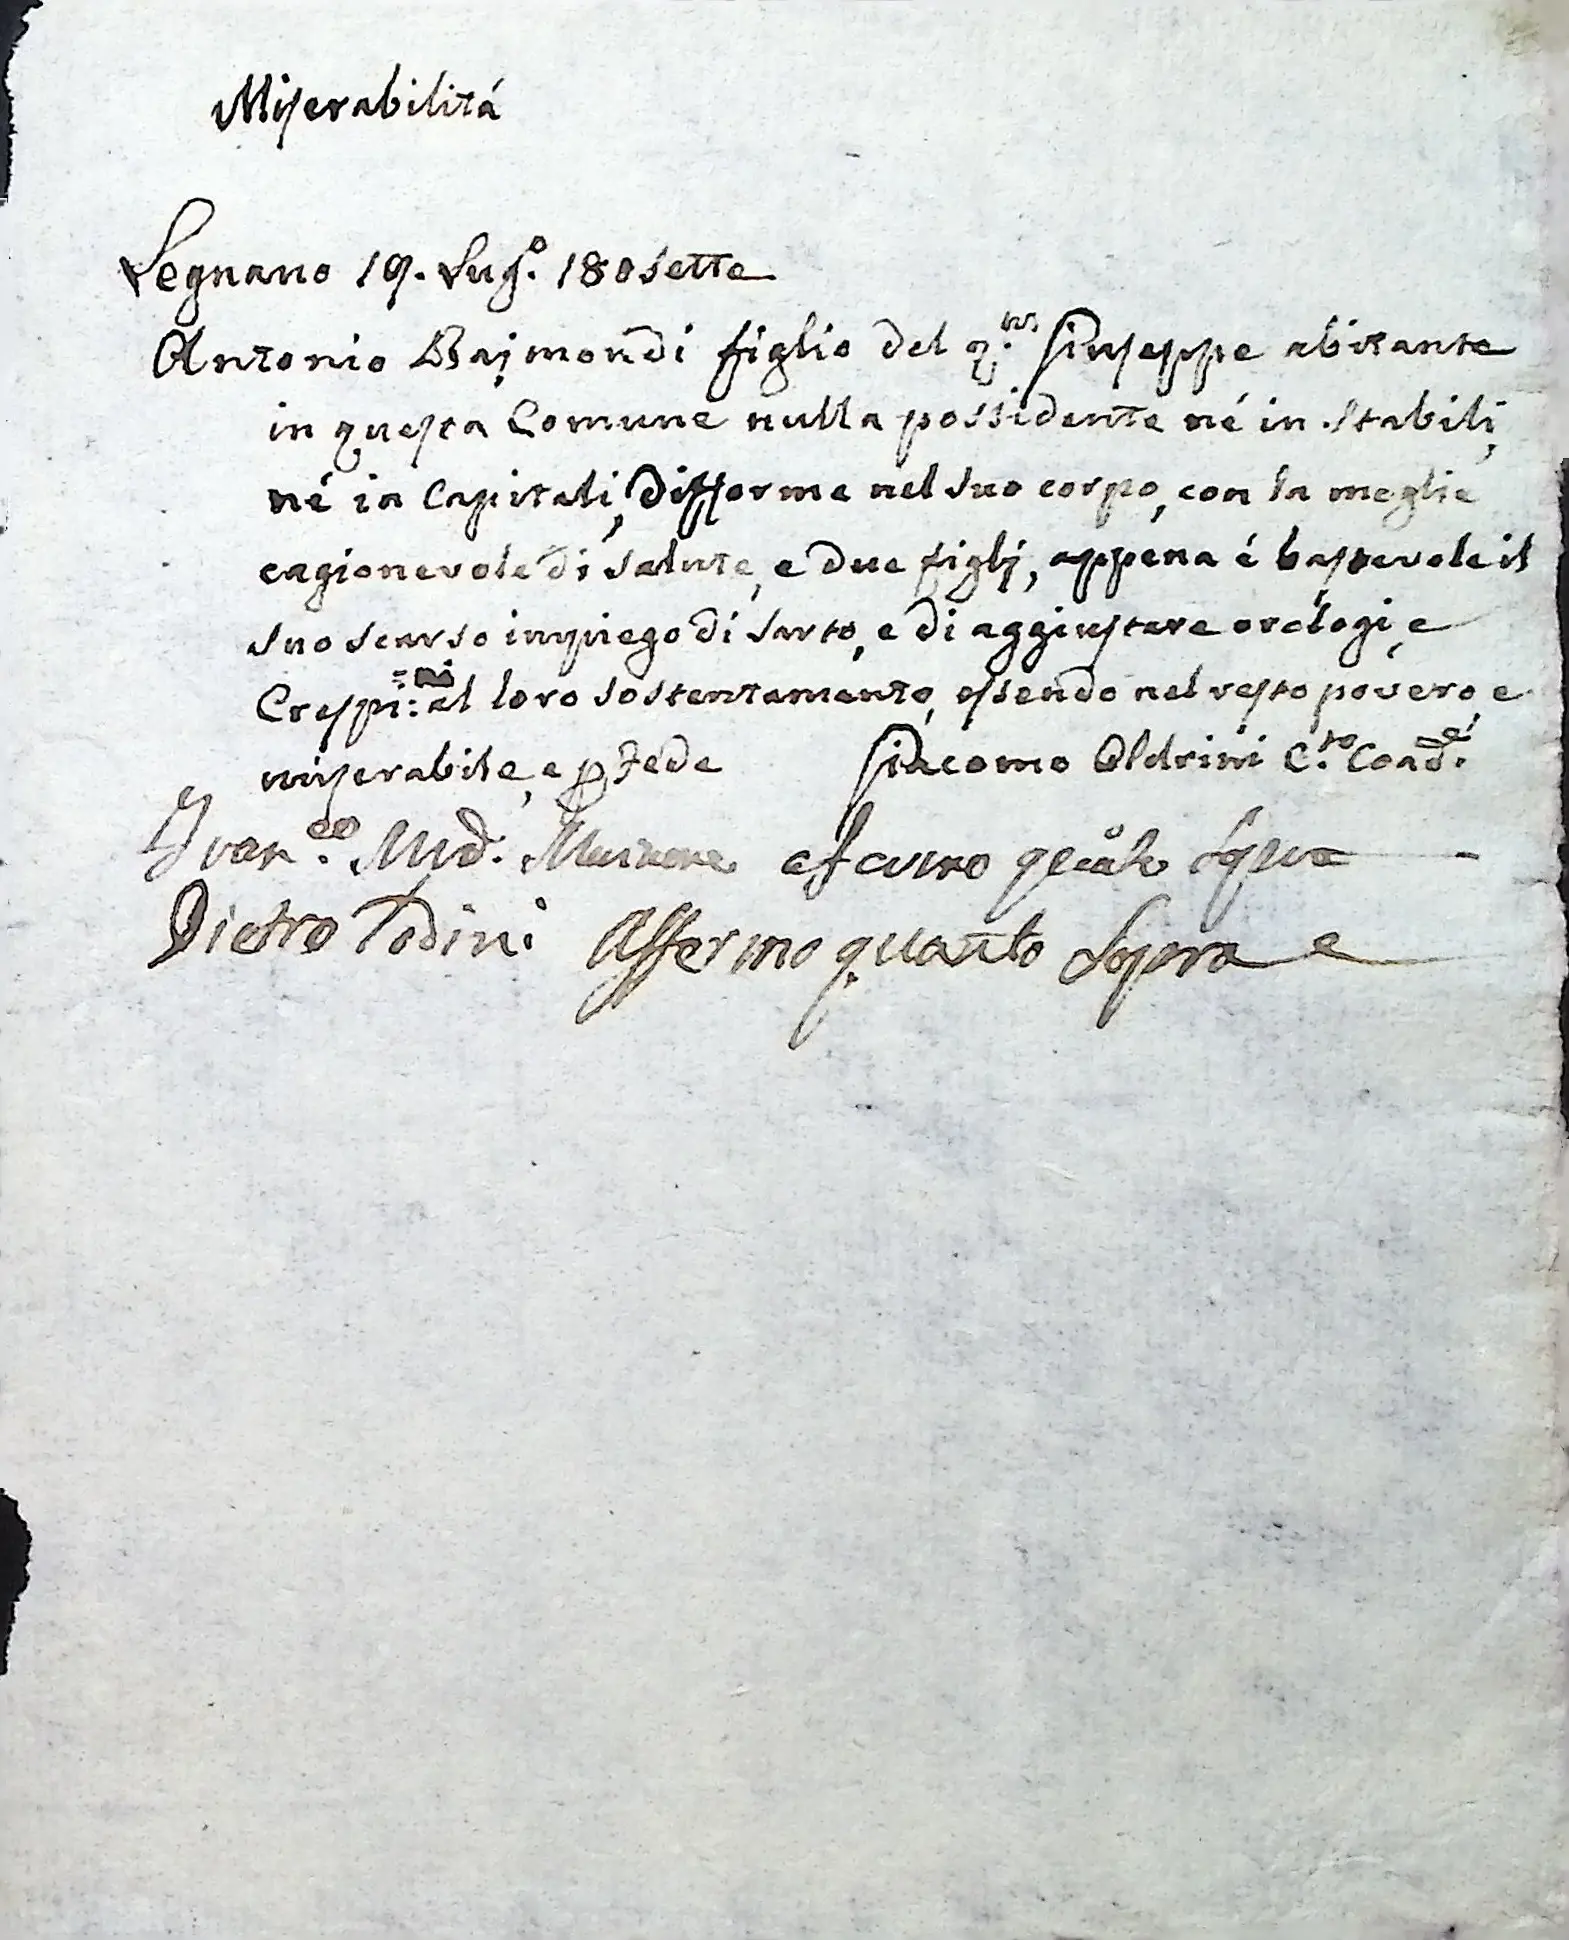 Miserabilitá
Legnano 19. Lug.º 180sette
Antonio Rajmondi figlio del q.m Giuseppe abitante
in questa Comune nulla possidente né in Stabili,
né in Capitali, difforme nel suo corpo, con la moglie
cagionevole di salute, e due figlj, appena é bastevole il
suo scarso impiego di sarto, e di aggiustare orologi, e
Crespi: al loro sostentamento, essendo nel resto povero, e
miserabile, e p fede Giacomo Oldrini C.to Coad.e
Fran.co affermo quāto Sopra
Pietro Todini Affermo quanto Sopra